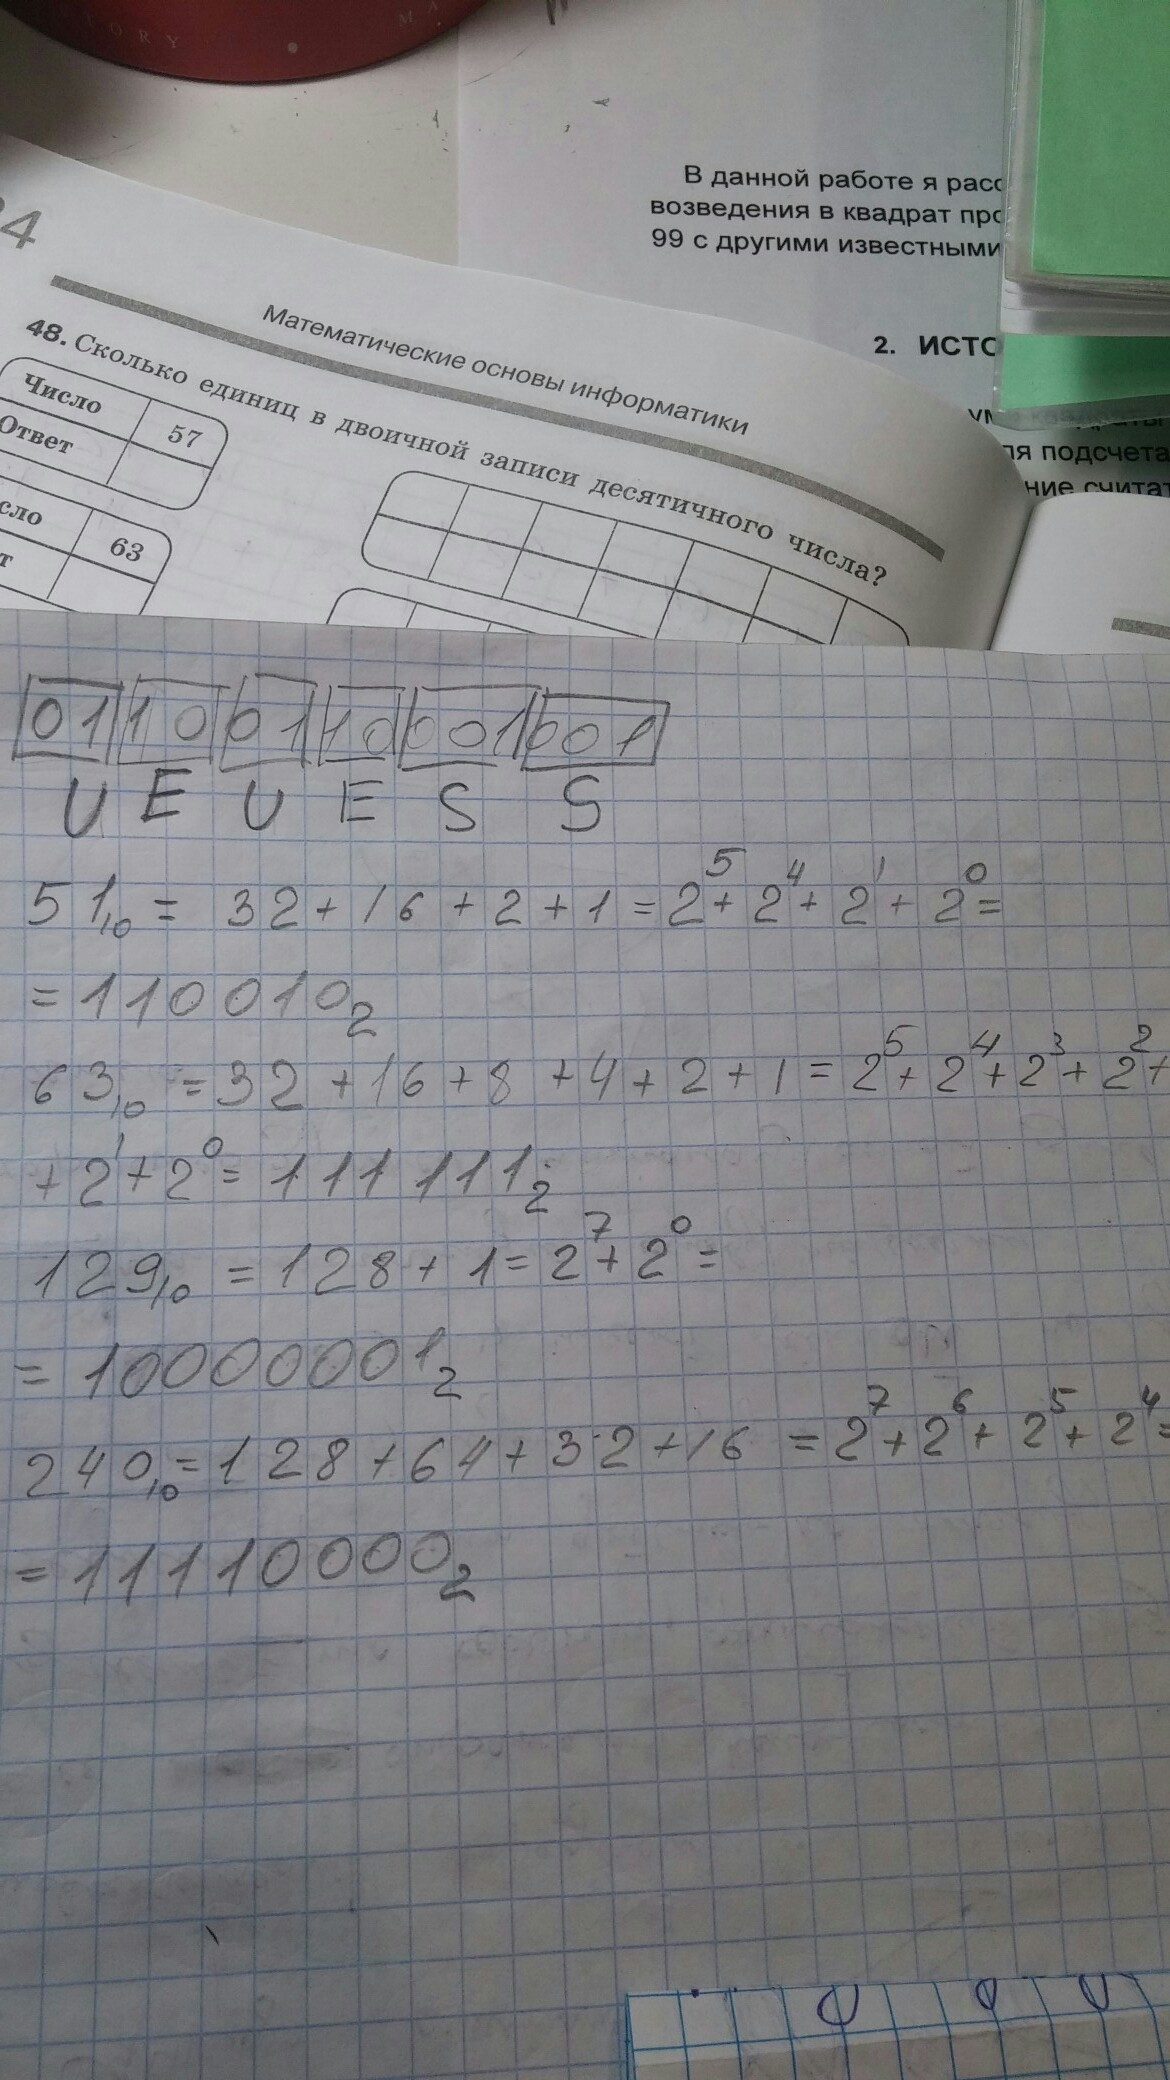 ORY MA
В данной работе я расс
возведения в квадрат про
99 с другими известными
2. ИСТО
ля подсчета
ние считат
Математические основы информатики
48. Сколько единиц в двоичной записи десятичного числа?
Число 57
Ответ
сло 63
т
01 10 01 10 001 001
U E U E S S
51₁₀ = 32 + 16 + 2 + 1 = 2⁵ + 2⁴ + 2¹ + 2⁰ =
= 110010₂
63₁₀ = 32 + 16 + 8 + 4 + 2 + 1 = 2⁵ + 2⁴ + 2³ + 2² +
+ 2¹ + 2⁰ = 111111₂
129₁₀ = 128 + 1 = 2⁷ + 2⁰ =
= 10000001₂
240₁₀ = 128 + 64 + 32 + 16 = 2⁷ + 2⁶ + 2⁵ + 2⁴ =
= 11110000₂